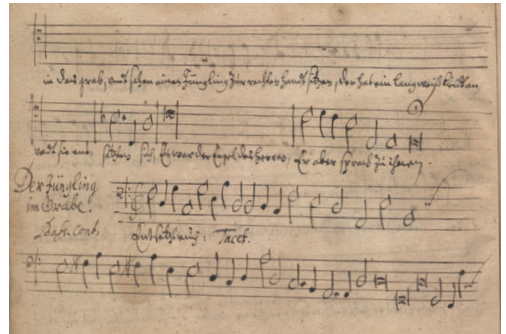 in das grab, und sahen einen Jüngling zur rechten handt sitzen, der hat ein lang weiß kleid an
und sie ent satzten sich, Er war der Engel des Herren, Er aber sprach zu ihnen.
Der Jüngling
im Grabe.
Bass. cont.
Entsetzt euch: Tacet.